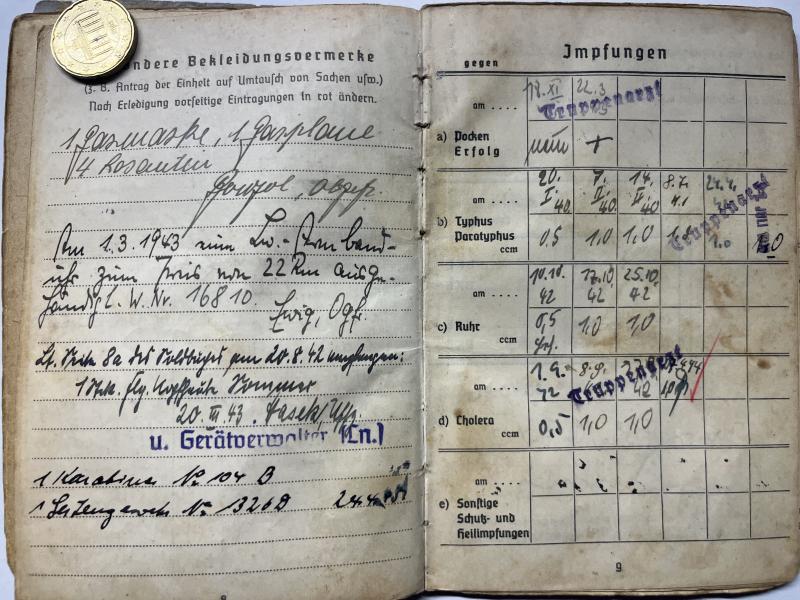 ondere Bekleidungsvermerke
(z. B. Antrag der Einheit auf Umtausch von Sachen usw.)
Nach Erledigung vorseitige Eintragungen in rot ändern.
1 Gasmaske, 1 Gasplane
4 Losantin
Am 1.3.1943 eine Lw.-Armband-
uhr zum Preis von 22 RM ausge-
händigt. W. Nr. 16810.
Ewig, Ogfr.
Lt. Seite 8a des Soldbuches am 20.8.42 empfangen:
1 Stck. flg. Kopfhaube Sommer
20. III 43.
u. Gerätverwalter (Ln.)
1 Karabiner No 104 B
1 Seitengewehr No 1326 D
8
Impfungen
gegen
am . . . . 18. XI 22.3
Truppenarzt
a) Pocken
Erfolg nein +
am . . . . 20. I 40. 7. II 40. 14. II 40 8.7.
Truppenarzt
b) Typhus
Paratyphus
ccm 0.5 1,0 1,0 1.0 1,0
am . . . . 10.10. 42 17.10 42 25.10. 42
c) Ruhr
ccm 0,5 1,0 1,0
am . . . . 1.9. 42 8.9.
Truppenarzt
d) Cholera
ccm 0,5 1,0 1,0
am . . . .
e) Sonstige
Schutz- und
Heilimpfungen
9